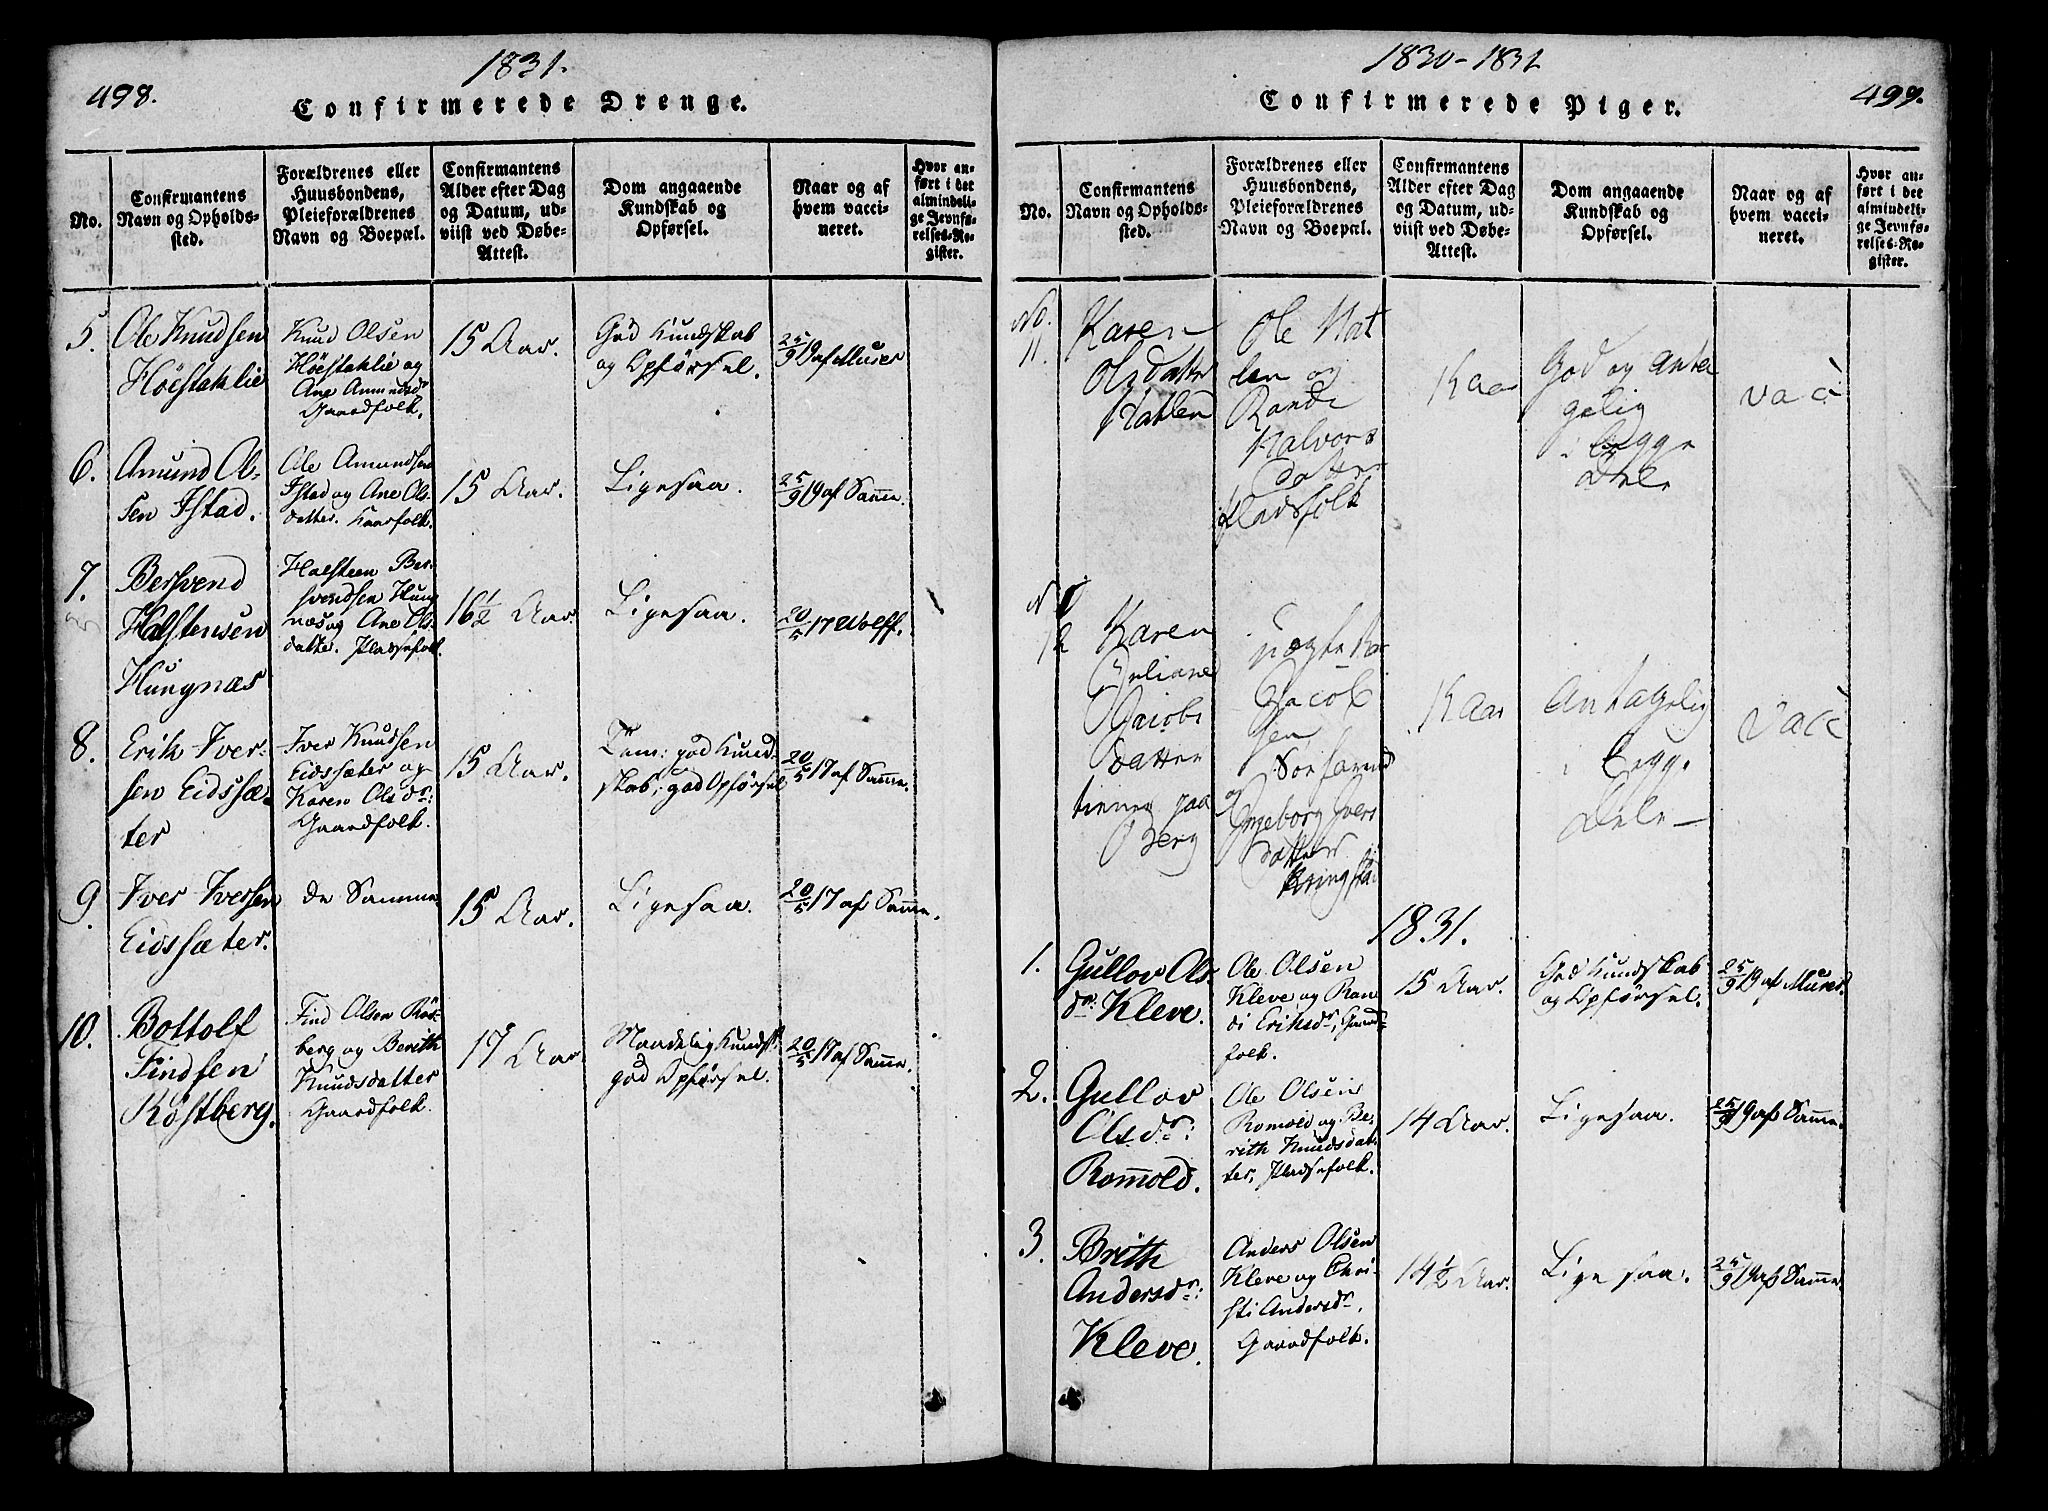 498.
1831.
Confirmerede Drenge.
No.
Confirmantens
Navn og Opholds-
sted.
Forældrenes eller
Huusbondens,
Pleieforældrenes
Navn og Boepæl.
Confirmantens
Alder efter Dag
og Datum, ud-
viist ved Døbe-
Attest.
Dom angaaende
Kundskab og
Opførsel.
Naar og af
hvem vacci-
neret.
Hvor an-
ført i det
almindeli-
ge Jevnfø-
relses-Re-
gister.
5.
Ole Knudsen
Höestaklie
Knud Olsen
Höestaklie og
Ane Amundsdr
Gaardfolk.
15 Aar.
God Kundskab
og Opförsel.
25/9 19 af Muser
6.
Amund Ol-
sen Istad.
Ole Amundsen
Istad og Ane Ols-
datter. Kaarfolk.
15 Aar.
Ligesaa.
25/9 19 af Samme
7.
Bersvend
Halstensen
Hungnæs
Halsteen Ber-
svendsen Hung
næs og Ane Ols-
datter. Pladsefolk.
16 1/2 Aar
Ligesaa.
20/5 17 Wolff.
8.
Erik Iver-
sen Eidssæ-
ter
Iver Knudsen
Eidssæter og
Karen Olsdr:
Gaardfolk.
15 Aar.
Tem: god Kund-
skab, god Opförsel
20/5 17 af Samme.
9.
Iver Iversen
Eidssæter.
de Samme
15 Aar.
Ligesaa.
20/5 17 af Samme.
10.
Bottolf
Findsen
Röstberg.
Find Olsen Rös-
berg og Berith
Knudsdatter
Gaardfolk.
17 Aar
Maadelig Kundsk:
god Opförsel.
20/5 17 af Samme.
1830-1831
499.
Confirmerede Piger.
No.
Confirmantens
Navn og Opholds-
sted.
Forældrenes eller
Huusbondens,
Pleieforældrenes
Navn og Boepæl.
Confirmantens
Alder efter Dag
og Datum, ud-
viist ved Døbe-
Attest.
Dom angaaende
Kundskab og
Opførsel.
Naar og af
hvem vacci-
neret.
Hvor an-
ført i det
almindeli-
ge Jevnfø-
relses-Re-
gister.
No.
11.
Karen
Olsdatter
Hatlen
Ole Hat
len og
Rande
Halvors
datter
Pladsfolk
Aar
God og Anta
gelig
i begge
Dele
vac
No
12
Karen
Juliane
Jacobs
datter
tienner paa
Berg
Jacob
sen
og
Ingeborg Ivers
datter
Kringstad
Aar
Antagelig
i begge
Dele
Vacc
1831.
1.
Gullov Ols-
dr. Kleve.
Ole Olsen
Kleve og Ran
di Eriksdr, Gaard-
folk.
15 Aar.
God Kundskab
og Opförsel.
25/9 19 af Muser.
2.
Gullov
Olsdr:
Romold.
Ole Olsen
Romold og Be-
rith Knudsdat-
ter, Pladsefolk.
14 Aar.
Ligesaa.
25/9 19 af Samme.
3.
Brith
Andersdr:
Kleve.
Anders Olsen
Kleve og Chri-
sti Andersdr.
Gaardfolk.
14 1/2 Aar.
Lige saa.
25/9 19 af Samme.